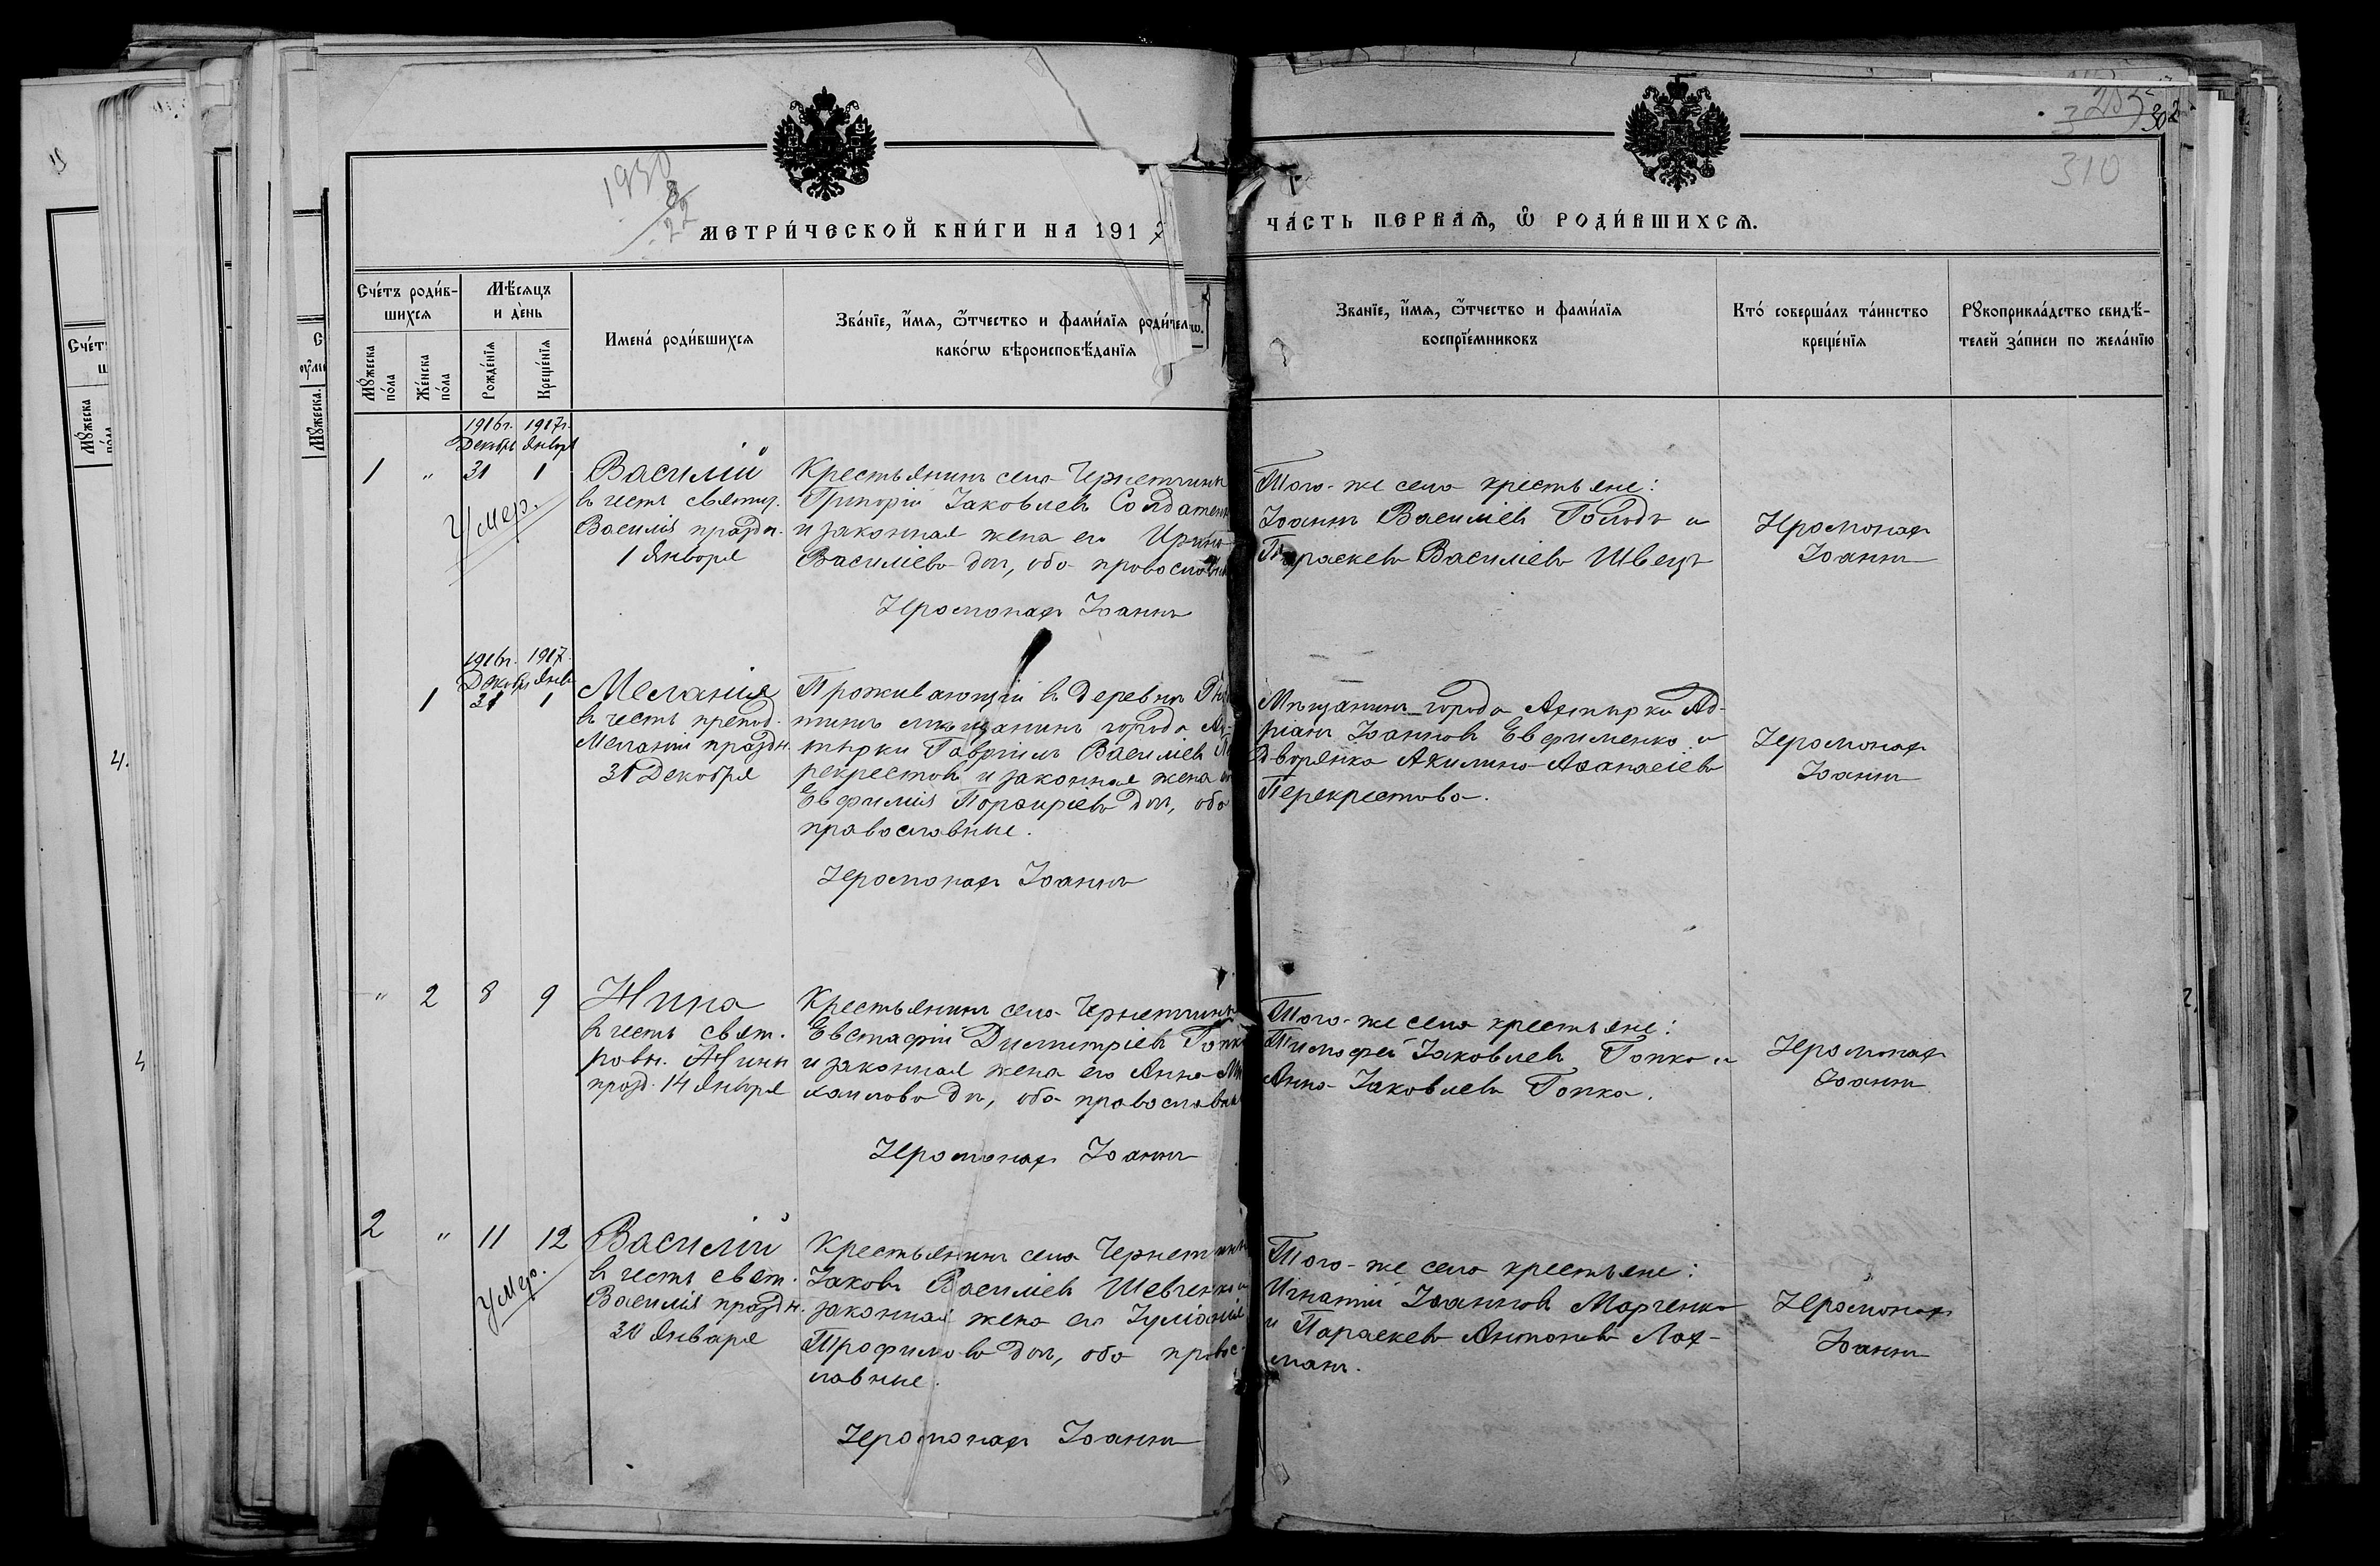 1930
8
22
285
302
310
МЕТРИ́ЧЕСКОЙ КНИ́ГИ НА 1917
ЧА́СТЬ ПЕРВАЯ, Ѡ҆ РОДИ́ВШИХСЯ.
Счє́тъ роди́в-
шихся
Мѣ́сяцъ
и де́нь
Мꙋ́жеска
по́ла
Же́нска
по́ла
Рожде́нїя
Креще́нїя
Имена́ роди́вшихся
Зва́нїе, и҆́мя, ѻ҆́тчество и фами́лїя роди́тел
како́гѡ вѣроисповѣ́данїя
Зва́нїе, и҆́мя, ѻ҆́тчество и фами́лїя
воспрїе́мниковъ
Кто́ соверша́лъ та́инство
креще́нїя
Рꙋкоприкла́дство свидѣ́-
телей за́писи по жела́нїю
1916г. 1917г.
Декабр Января
1 " 31 1
Умер.
Василій
въ честь святит.
Василія праздн.
1 Января
Крестьянинъ села Чернетчин
Григорій Іаковлевъ Солдатенк
и законная жена его Ирина
Василіева доч, оба православн
Іеромонахъ Іоаннъ
Того-же села крестьяне:
Іоаннъ Василіевъ Голодъ и
Параскева Василіева Швецъ
Іеромонахъ
Іоаннъ
1916г. 1917.
Декабр Янва
1 31 1
Меланія
въ честь препод.
Меланіи праздн.
31 Декабря
Проживающій въ деревнѣ
мѣщанинъ города Ах-
тырки Гавріилъ Василіевъ Пе
рекрестовъ и законная жена
Евфимія Порфиріева доч, оба
православные.
Іеромонахъ Іоаннъ
Мѣщанинъ города Ахтырки Ад-
ріанъ Іоанновъ Евфименко и
Дворянка Акилина Аѳанасіева
Перекрестова.
Іеромонахъ
Іоаннъ
" 2 8 9
Нина
въ честь свят.
равн. Нины
празд. 14 Января
Крестьянинъ села Чернетчин
Евстафій Димитріевъ Гопк
и законная жена его Анна Ми
хаилова доч, оба православн
Іеромонахъ Іоаннъ
Того-же села крестьяне:
Тимофей Іаковлевъ Гопка и
Анна Іаковлева Гопка.
Іеромонахъ
Іоаннъ
2 " 11 12
Умер.
Василій
въ честь свят.
Василія праздн.
30 Января
Крестьянинъ села Чернетчин
Іаковъ Василіевъ Шевченко и
законная жена его Іуліанія
Трофимова доч, оба правос-
лавные.
Іеромонахъ Іоаннъ
Того-же села крестьяне:
Игнатій Іоанновъ Марченко
и Параскева Антонова Лах-
манъ.
Іеромонахъ
Іоаннъ